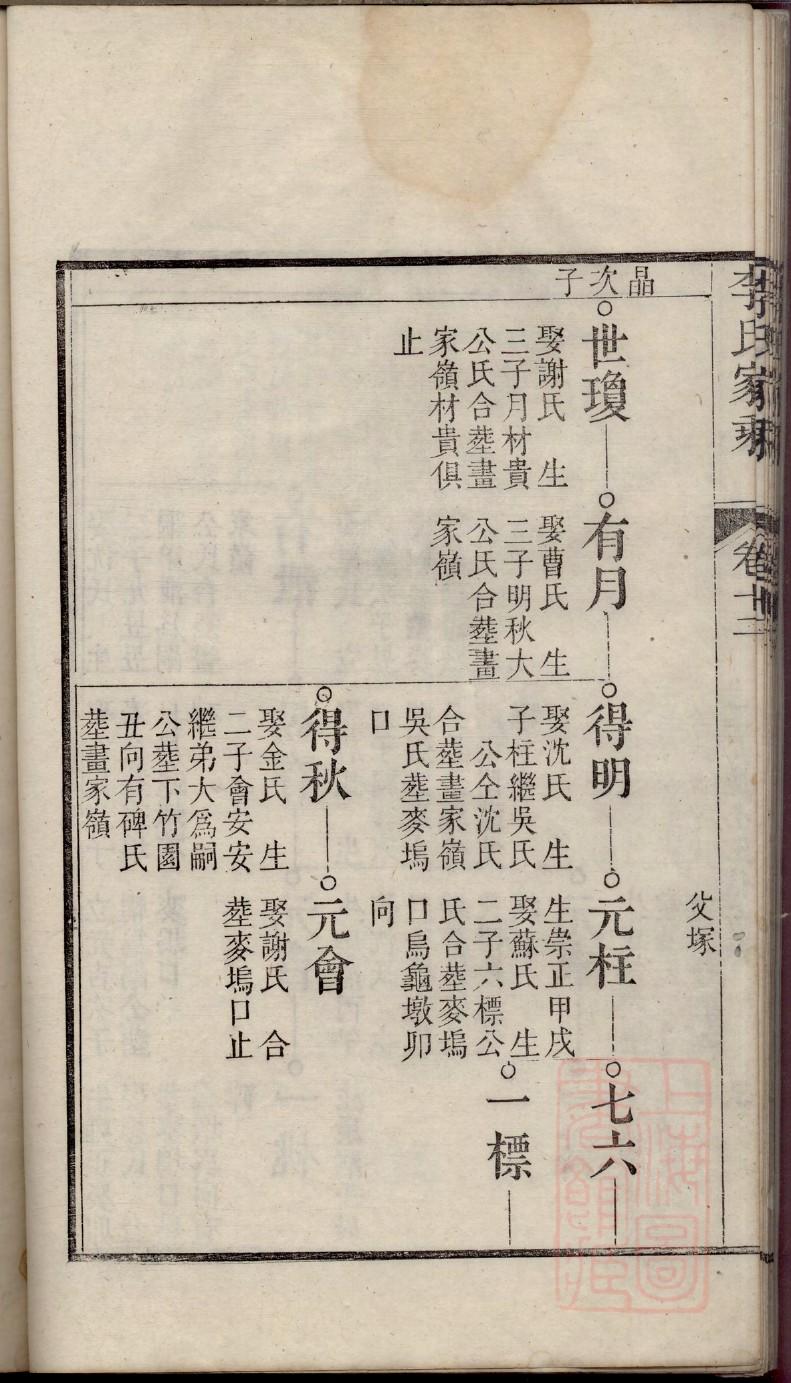 李氏家乘
卷十二
父塚
品次子
世瓊
娶謝氏 生
三子月材貴
公氏合塟畫
家嶺材貴俱
止
有月
娶曹氏 生
三子明秋大
公氏合塟畫
家嶺
得明
娶沈氏 生
子柱繼吳氏
公仝沈氏
合塟畫家嶺
吳氏塟麥塢
口
元柱
生崇正甲戌
娶蘇氏 生
二子六標公
氏合塟麥塢
口烏龜墩卯
向
七六
一標
得秋
娶金氏 生
二子會安安
繼弟大爲嗣
公塟下竹園
丑向有碑氏
塟畫家嶺
元會
娶謝氏 合
塟麥塢口止
上海圖
書館藏